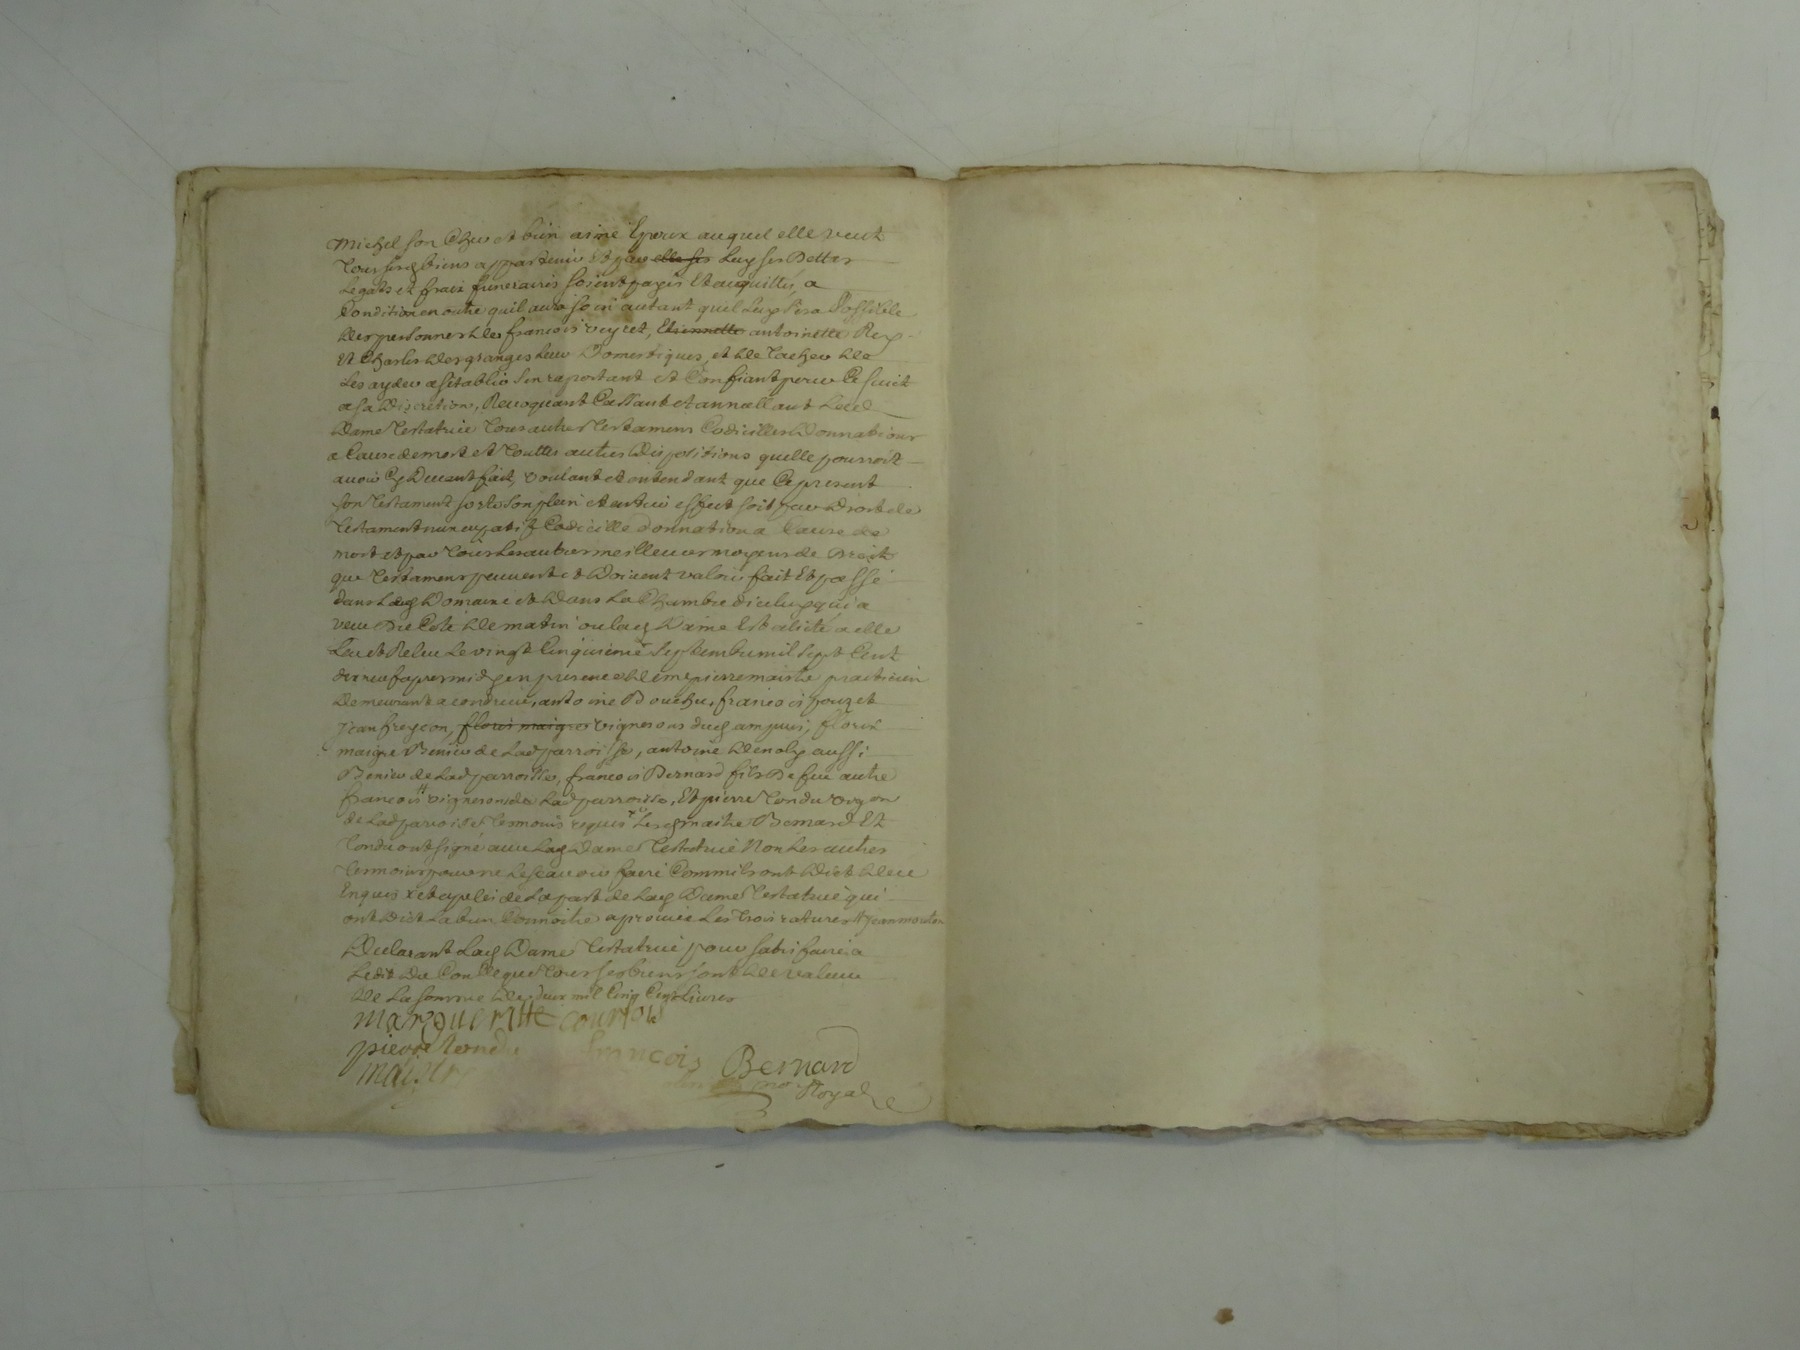 Michel son cher et bien aimé Epoux auquel elle veut
tous sesd biens appartenir Et que elle ses luy ses Dettes
Legats et fraix funeraires soient payés Et acquittés, a
Condition en outre quil aura soin autant quil luy sera Possible
des personnes de francois veyret, Etiennette antoinette Rey
Et Charles desgranges leur Domestiques, et de tacher de
Les ayder a setablir sen raportant et Confiant pour Ce sujet
a sa Discretion, Revoquant Cassant et annullant lad
Dame Testatrice tous autres Testamens Codicilles Donnations
a Cause de mort et touttes autres Dispositions quelle pourroit
avoir Cy Devant fait, voulant et entendant que Ce present
son Testament sorte son plein et entier effect soit par Droit de
Testament nuncupatif Codicille donnation a Cause de
mort et par tous Les autres meilleurs moyens de Droit
que Testamens peuvent et Doivent valoir fait Et passé
dans led Domaine et Dans La Chambre diceluy qui a
veue Du Coté de matin ou lad Dame Est alitée a elle
Leu et Releu Le vingt Cinquieme Septembre mil Sept Cent
dix neuf apres midy en presence de me pierre maistre practicien
demeurant a condrieu, antoine Bouchu, francois pouzet
jean freycon, floris maigre vignerons dud ampuis, floris
maigre Benier de Lad parroisse, antoine denoly aussi
Benier de Lad parroisse, francois Bernard fils De feu autre
francois vigneron de Lad parroisse, Et pierre tondu vigon
de Lad parroisse Temoins requis Lesd maitre Bernard Et
tondu ont signé avec Lad Dame Testatrice Non Les autres
Temoins pour ne Le scavoir faire Comm ils ont Dict de ce
Enquis et apelés de La part de Lad Dame Testatrice qui
ont Dict La bien Connoitre aprouvé Les trois ratures # jean mouton
Declarant Lad Dame Testatrice pour satisfaire a
Ledit Du Conlle que tous ses biens sont de valeur
de La somme de deux mil Cinq Cens Livres
margueritte courbo
pierre tondu francois Bernard
maistre
Royal